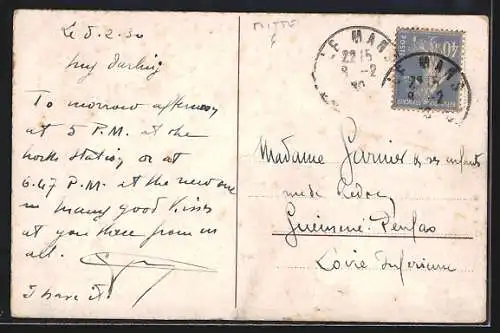 Le 8.2.30
My darling
To morrow afternoon
at 5 P.M. at the
North Station or at
6.47 P.M. at the new one
many good kisses
at you three from us
all.
I have it.
LE MANS
22 15
8 -2
30
LE MANS
22 15
8 -2
40c
Madame Garnier & ses enfants
rue de Redon
Guémené-Penfao
Loire Inférieure